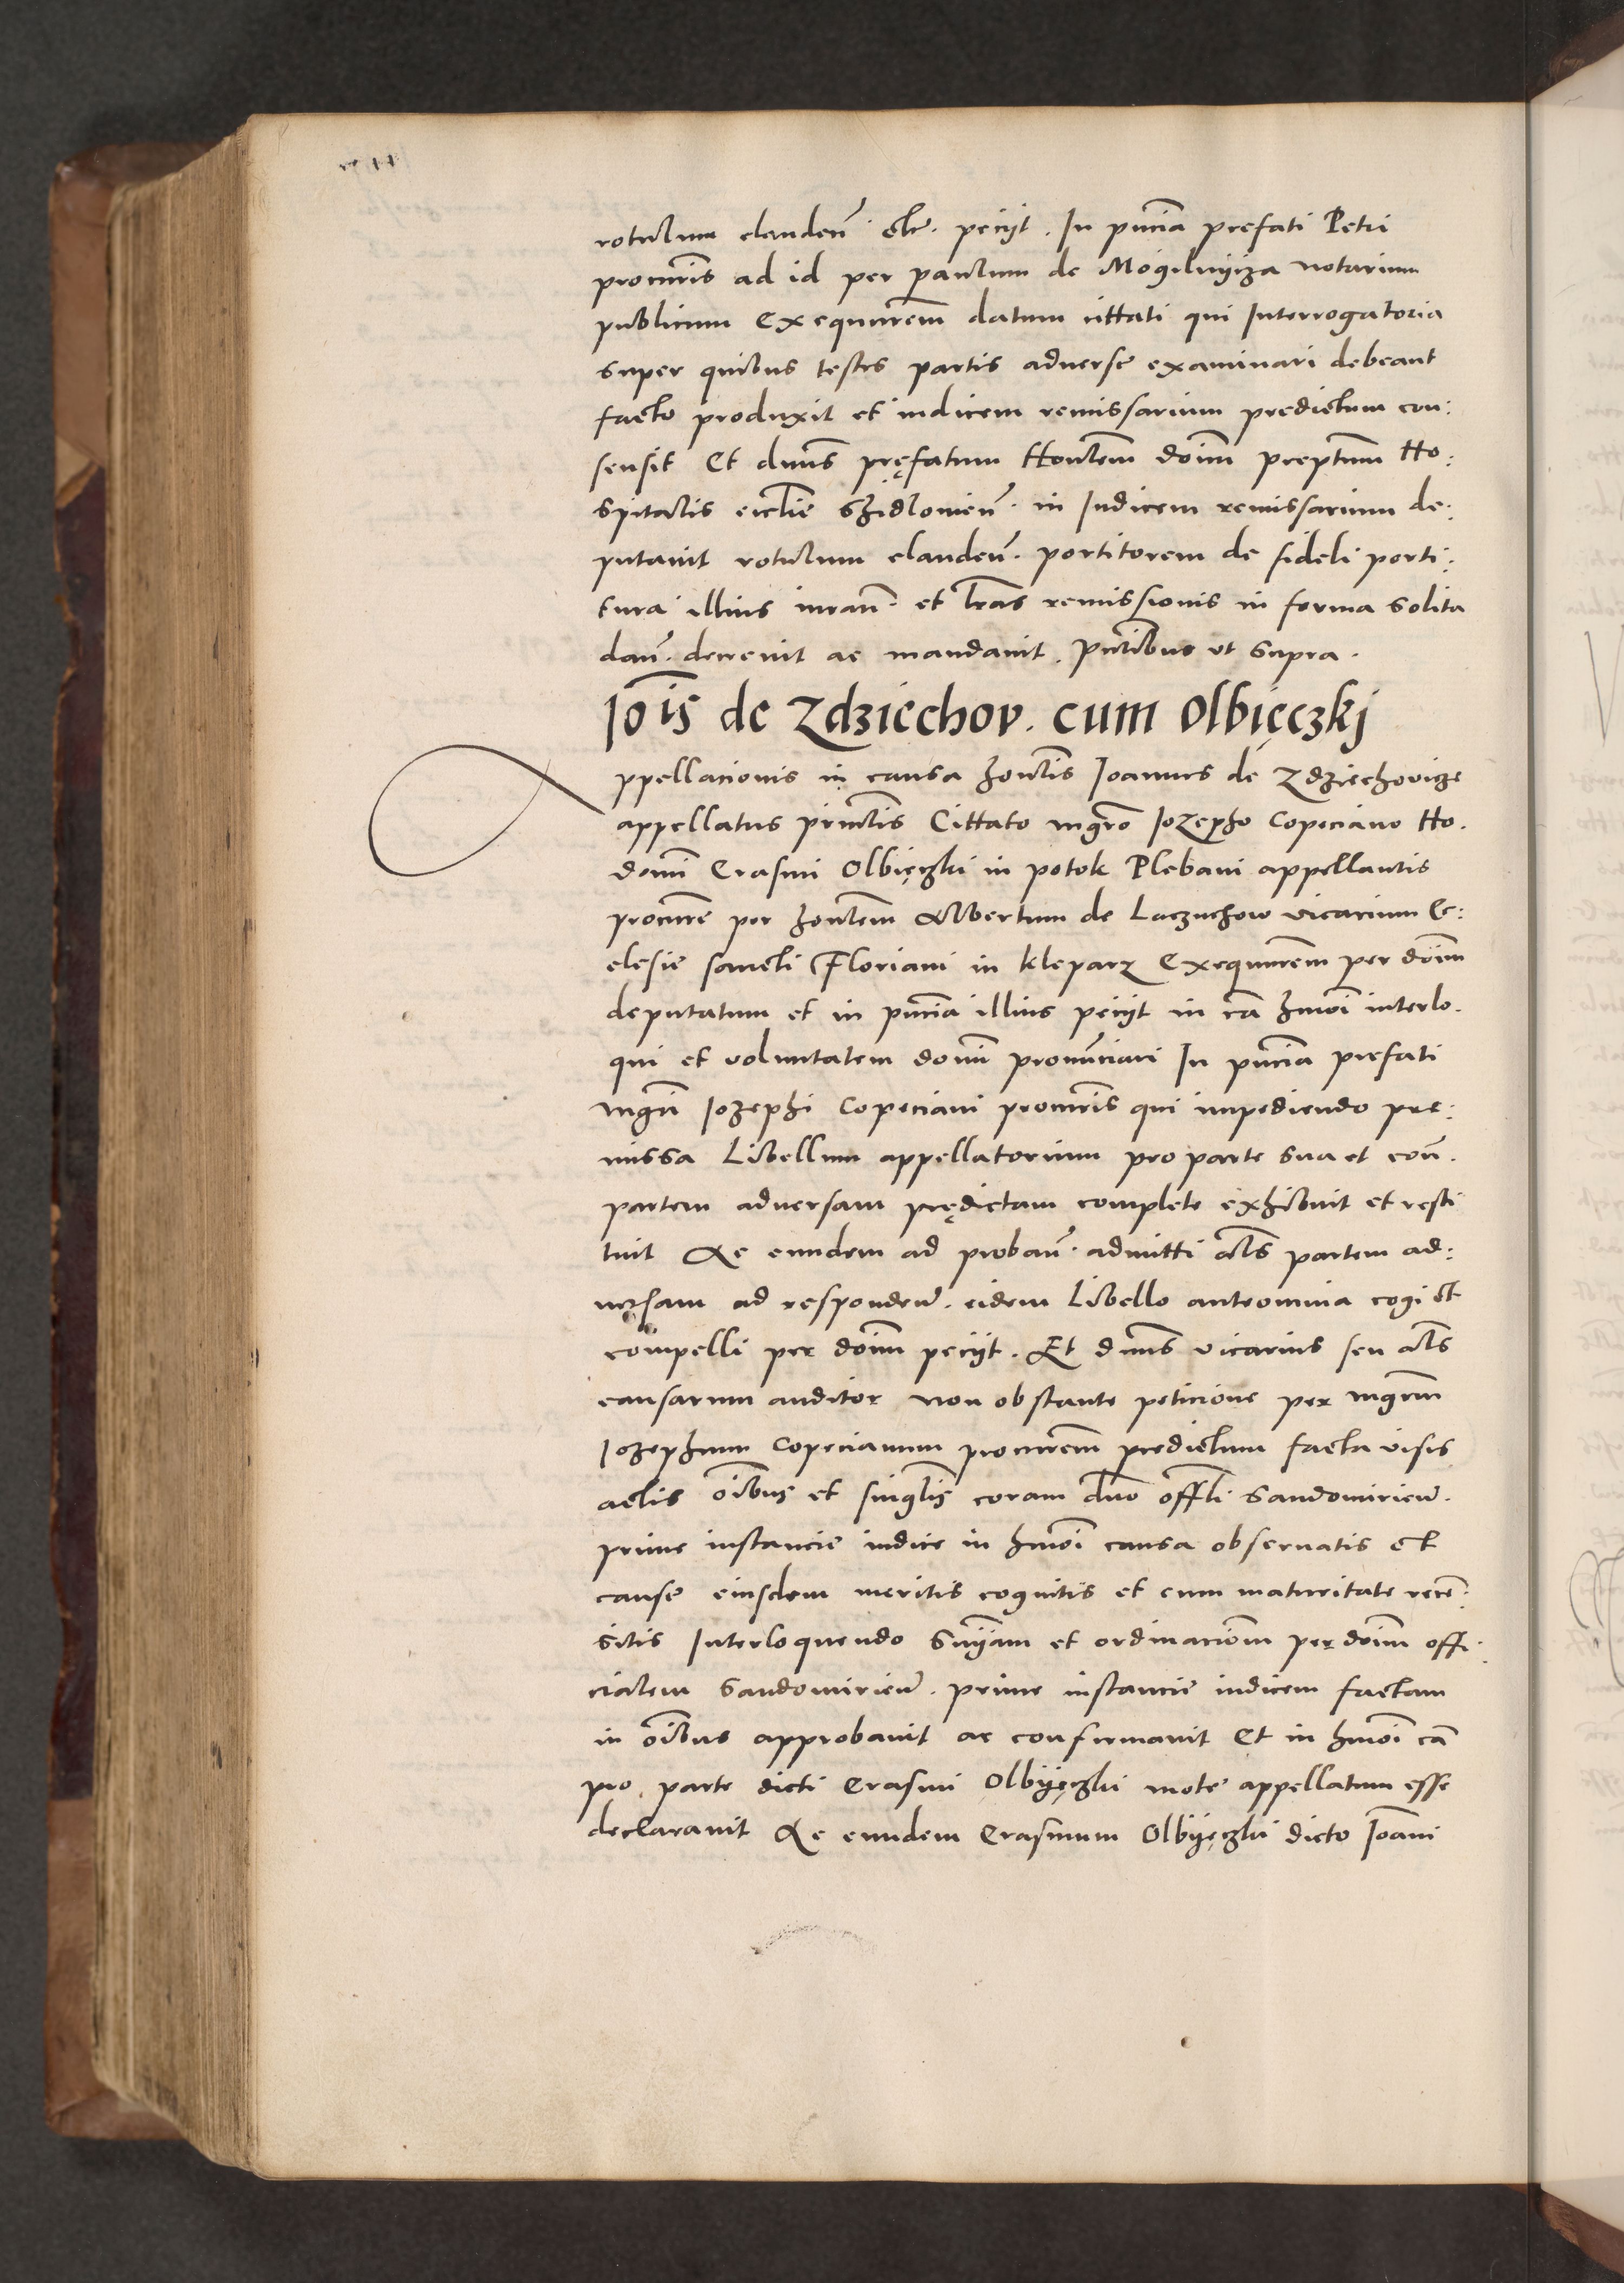 rotulum claudenͫ etc. peciit. In pn̄cia prefati Petri
procur̄is ad id per paulum de Mogilnycza notarium
publicum Exequutorem datum cittati qui Interrogatoria
super quibus testes partis aduerse examinari debeant
facto produxit et iudicem remissarium predictum con:
sensit Et dn̄us pręfatum Hon̄lem doīm preptum̄ Ho:
spitalis eccl̄ie Szidlouien̄. in Iudicem remissarium de:
putauit rotulum clauden̄. portitorem de fideli porti:
tura illius iuran̄. et l̄ras remissionis in forma solita
dan̄. decreuit ac mandauit. pn̄tibus vt supra.
Jo̅is de Zdziechov. cum Olbięczkj
Appellacionis in causa hon̄lis Joannis de Zdziechovicze
appellatus prin̄lis Cittato mgr̄o Jozepho Copeciano Ho.
domī Erasmi Olbięczki in potok Plebani appellantis
procur̄e per hon̄lem Albertum de Laczuchow vicarium Ec:
clesie sancti Floriani in kleparz Exequutorem per doīm
deputatum et in pn̄cia illius peciit in cā hm̄oi interlo.
qui et voluntatem domī pronun̄ciari In pn̄cia prefati
mgr̄i Jozephi Copeciani procur̄is qui impediendo pre:
missa Libellum appellatorium pro parte sua et con̄.
partem aduersam prędictam complete exhibuit et resti
tuit Ac eundem ad proban̄. admitti al̄s partem ad:
uęrsam ad responden̄. eidem Libello anteomnia cogi et
compelli per doīm peciit. Et dn̄us vicarius seu al̄s
causarum auditor non obstante peticione per mgr̄um
Jozephum Copecianum procur̄em predictum facta visis
actis oībus et singl̄is coram dn̄o offl̄i Sandomirien̄.
prime instancie iudice in hm̄oi causa obseruatis et
cause eiusdem meritis cognitis et cum maturitate recen̄:
sitis Interloquendo Sn̄iam et ordinacioem per doīm offi:
cialem Sandomirien̄. prime instancie iudicem factam
in oībus approbauit ac confirmauit Et in hm̄oi cā
pro parte dicti Erasmi Olbyęczki mote appellatum esse
declarauit Ac eundem Erasmum Olbyęczki dicto Joāni